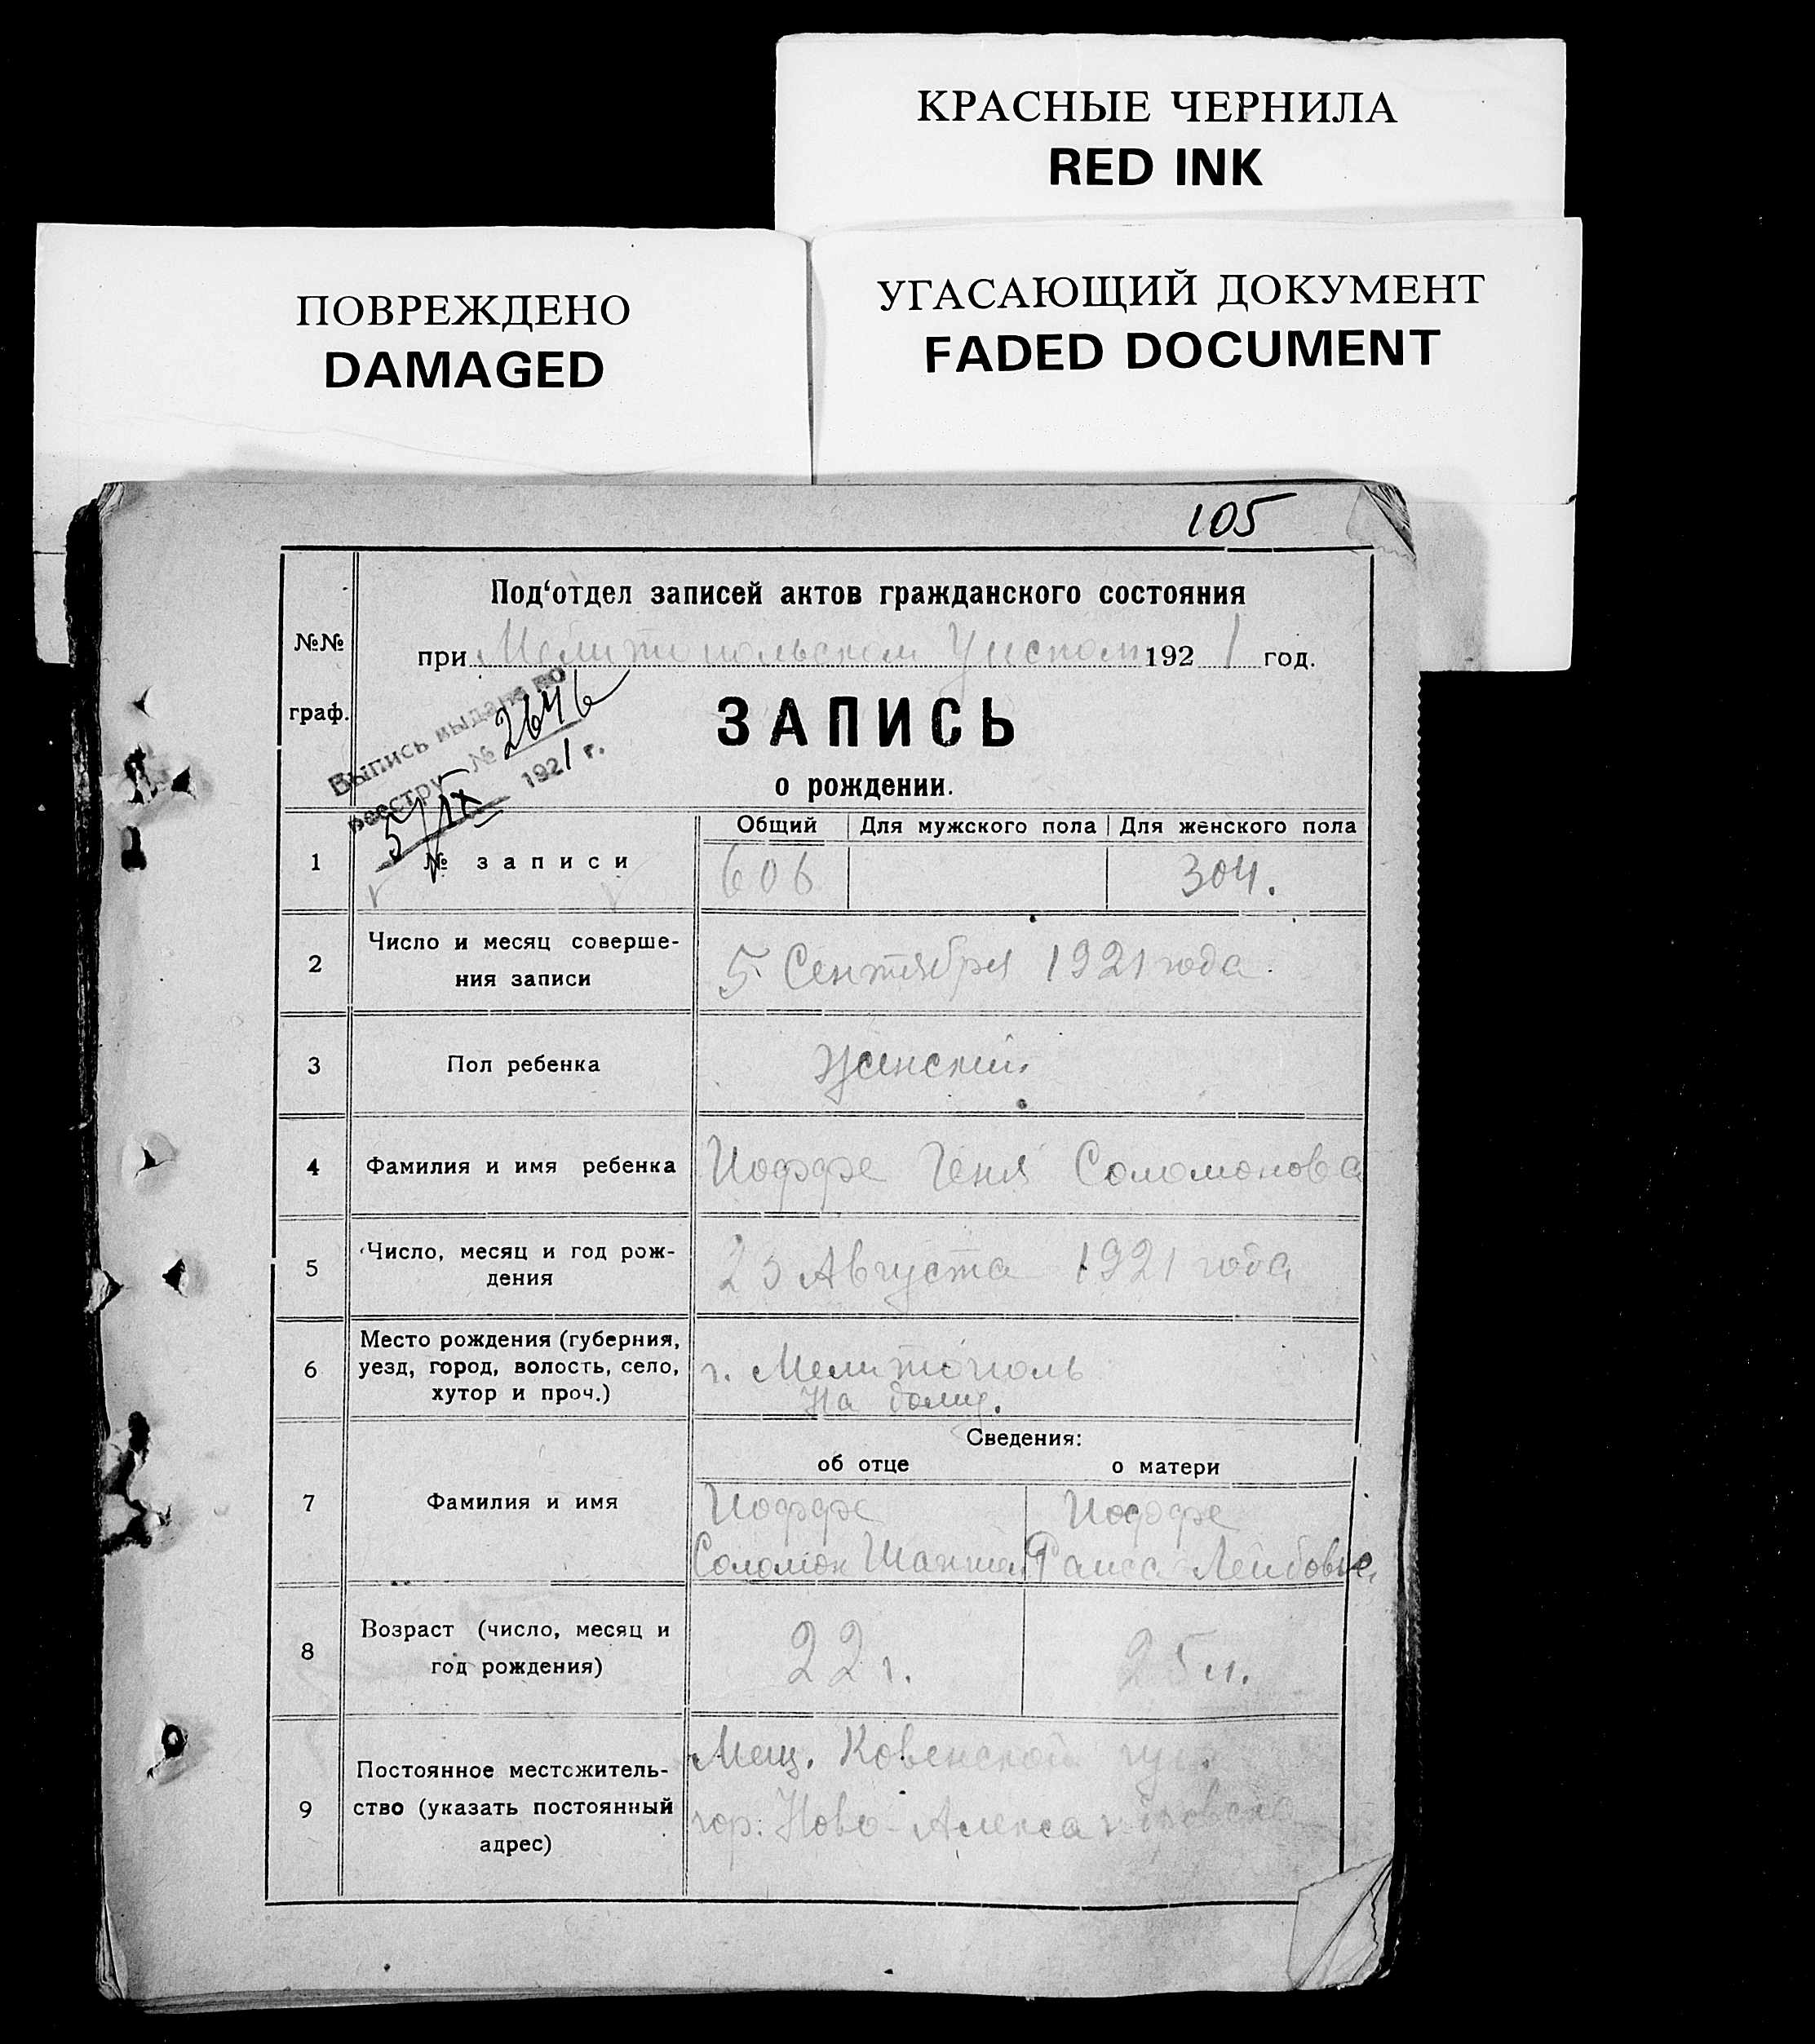 КРАСНЫЕ ЧЕРНИЛА
RED INK
ПОВРЕЖДЕНО
DAMAGED
УГАСАЮЩИЙ ДОКУМЕНТ
FADED DOCUMENT
105
№№
граф.
Под‘отдел записей актов гражданского состояния
при Мелитопольском Уисполк 192 1 год.
Выпись выдана по
реестру № 2646
5/IX 1921 г.
ЗАПИСЬ
о рождении.
Общий Для мужского пола Для женского пола
1 № записи 606 304.
2 Число и месяц соверше-
ния записи
5 Сентября 1921 года.
3 Пол ребенка Женский.
4 Фамилия и имя ребенка Иоффе Геня Соломонова
5 Число, месяц и год рож-
дения
23 Августа 1921 года
6 Место рождения (губерния,
уезд, город, волость, село,
хутор и проч.)
г. Мелитополь
На дому.
Сведения:
об отце о матери
7 Фамилия и имя
Иоффе Иоффе
Соломон Раиса Лейбовне
8 Возраст (число, месяц и
год рождения)
22 г. 25 л.
9 Постоянное местожитель-
ство (указать постоянный
адрес)
Мещ. Ковенской губ.
гор. Ново-Александровска